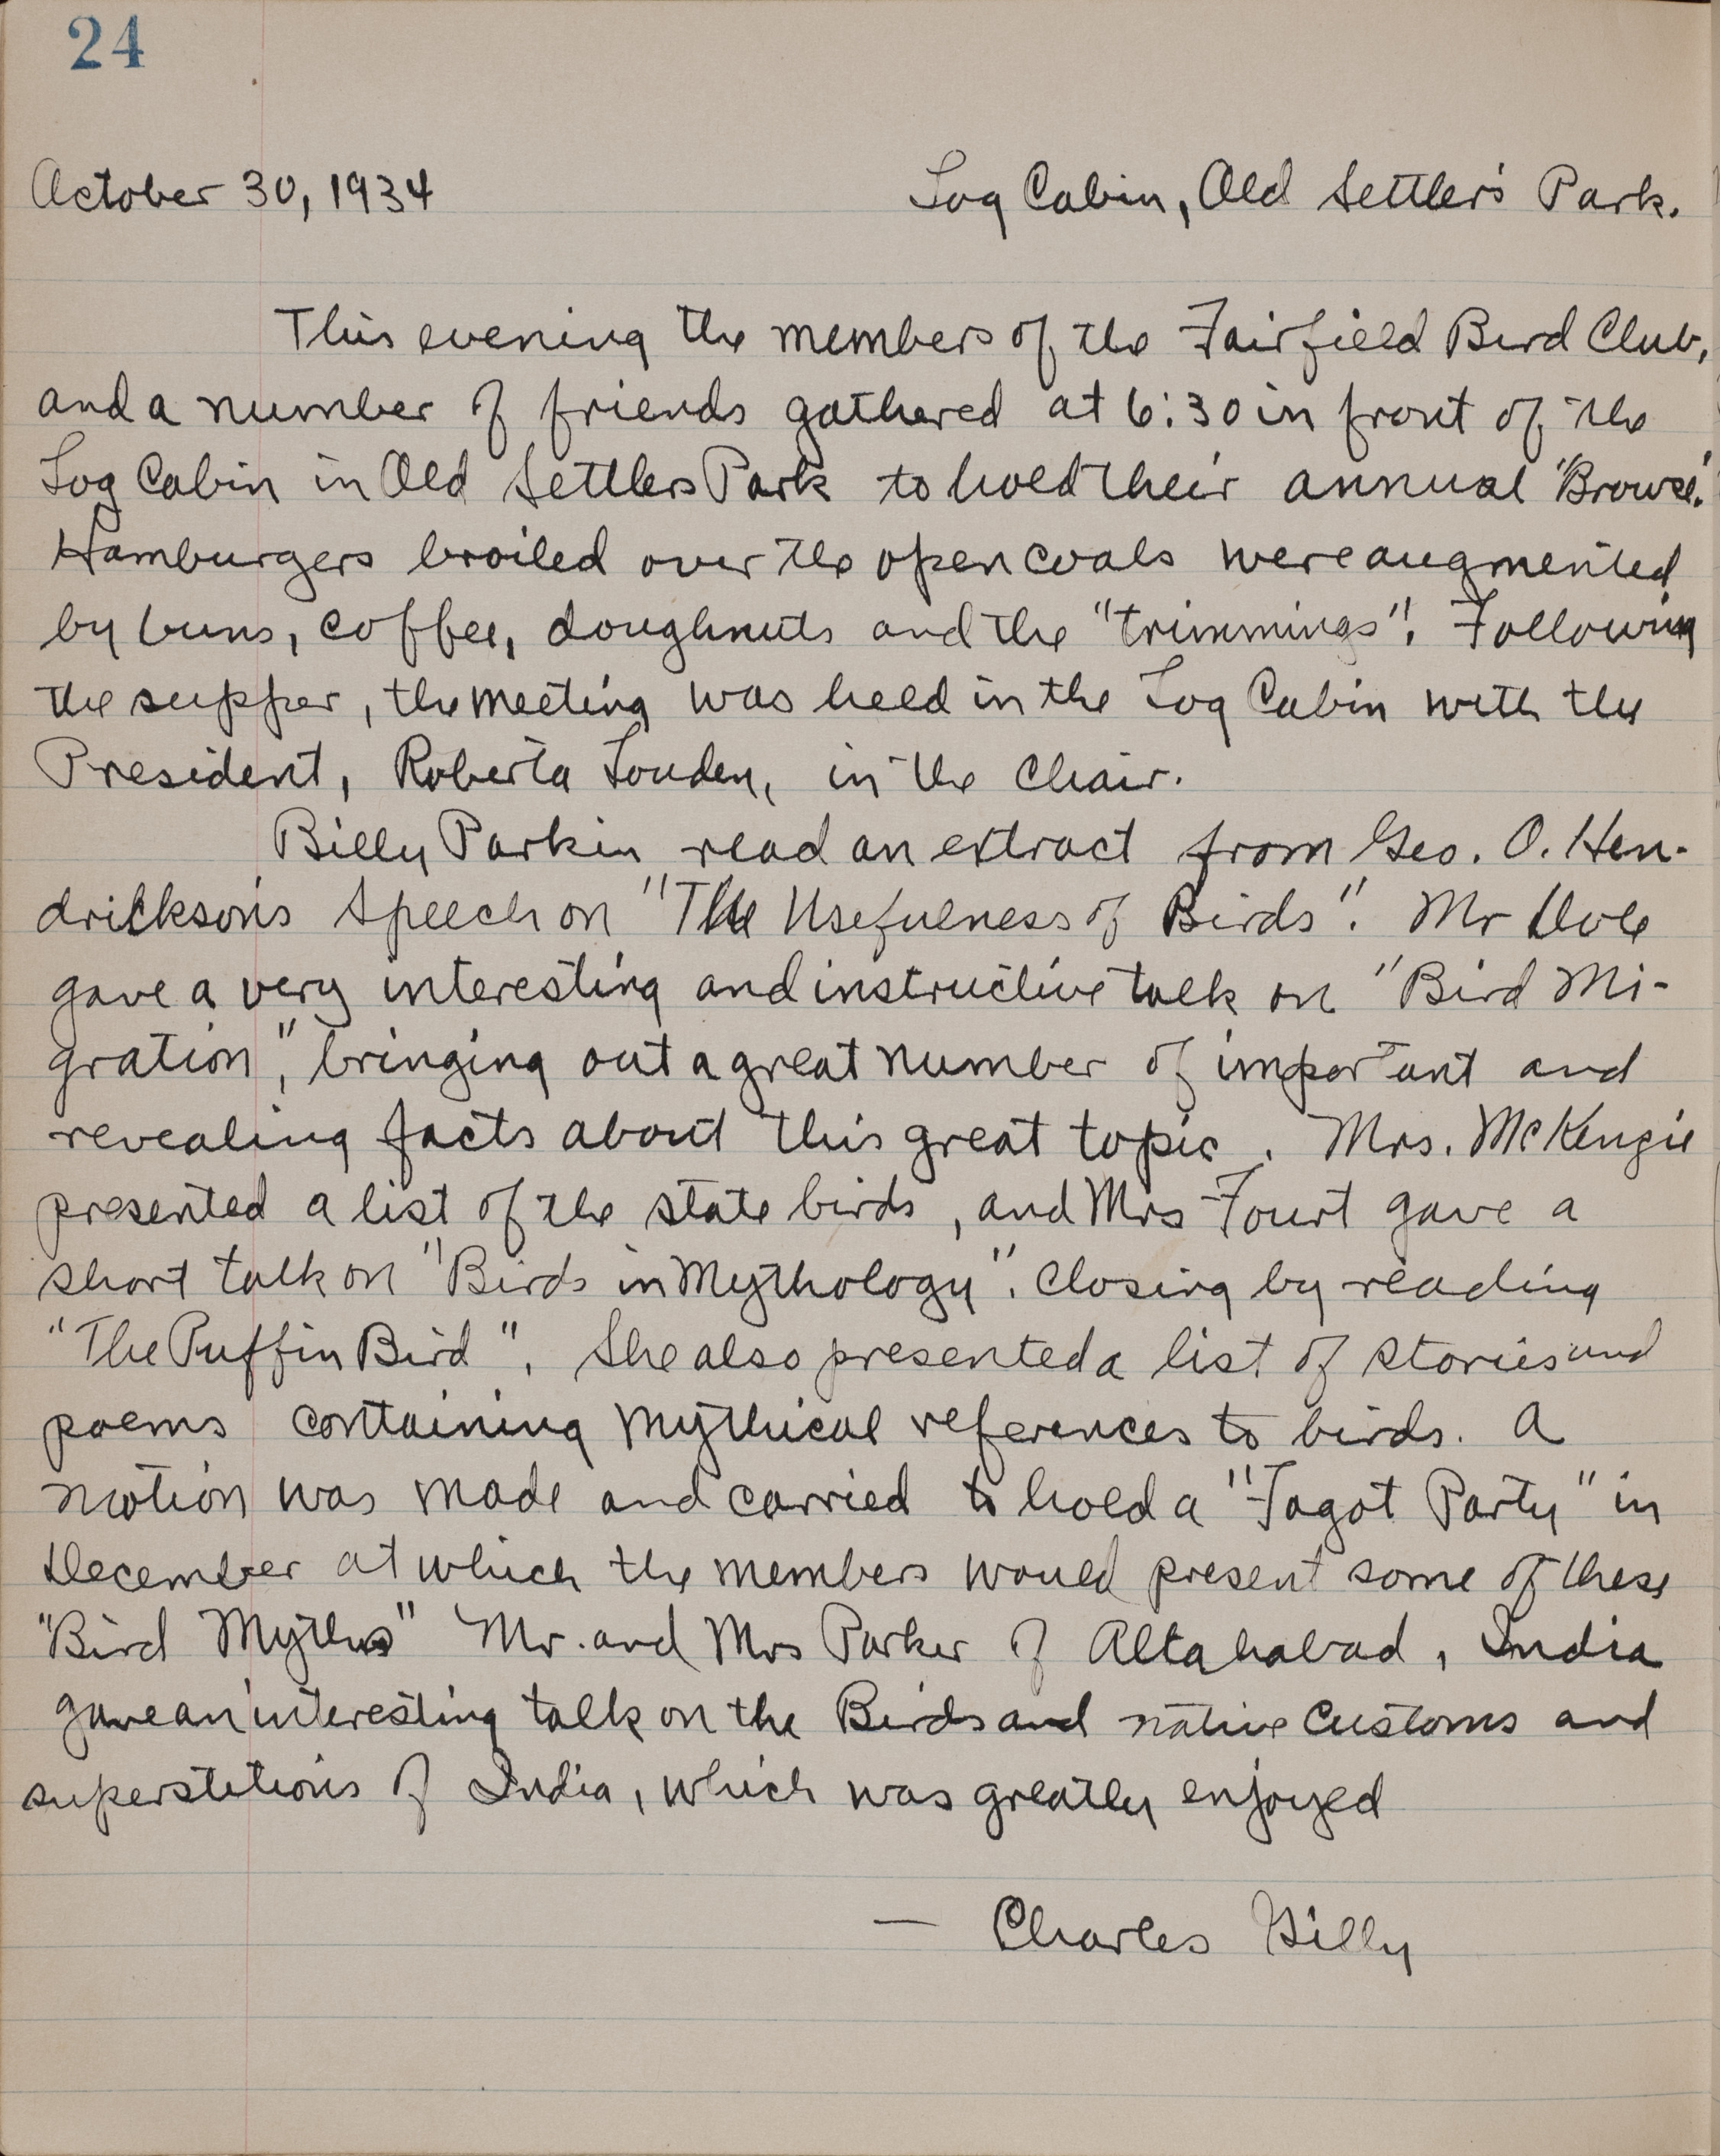 24
October 30, 1934 Log Cabin, Old Settler's Park.
This evening the members of the Fairfield Bird Club,
and a number of friends gathered at 6:30 in front of the
Log Cabin in Old Settlers Park to hold their annual "Browse."
Hamburgers broiled over the open coals were augmented
by buns, coffee, doughnuts and the "trimmings". Following
the supper, the meeting was held in the Log Cabin with the
President, Roberta Louden, in the chair.
Billy Parkin read an extract from Geo. O. Hen-
drickson's speech on "The Usefulness of Birds". Mr Dole
gave a very interesting and instructive talk on "Bird Mi-
gration", bringing out a great number of important and
revealing facts about this great topic. Mrs. McKenzie
presented a list of the state birds, and Mrs Fourt gave a
short talk on "Birds in Mythology". Closing by reading
"The Puffin Bird". She also presented a list of stories and
poems containing mythical references to birds. A
motion was made and carried to hold a "Fagot Party" in
December at which the members would present some of these
"Bird Myths" Mr. and Mrs Parker of Altahabad, India
gave an interesting talk on the Birds and native customs and
superstitions of India, which was greatly enjoyed
— Charles Gilly